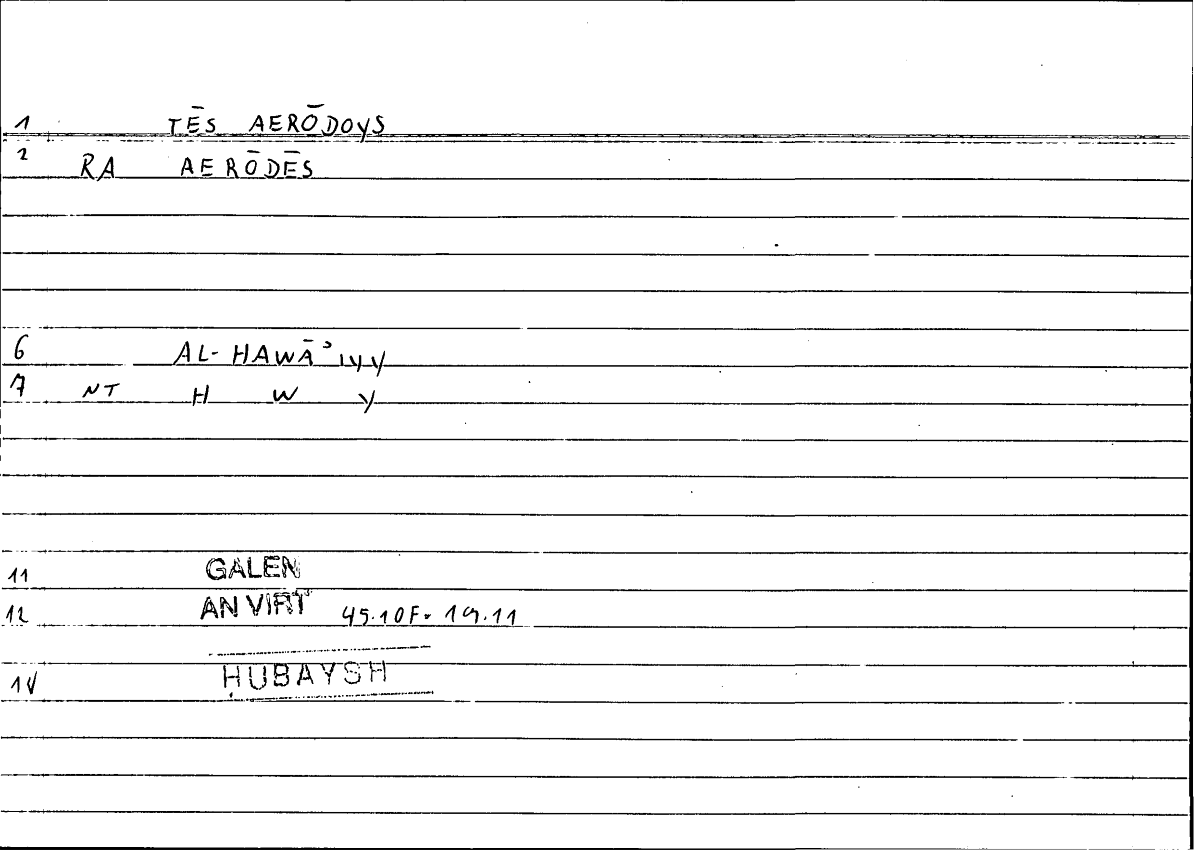 1 TĒS AERŌDOYS
2 RA AERŌDĒS
6 AL-HAWĀʾIYY
7 NT H W Y
11 GALEN
12 AN VIRT 45.10F. 19.11
14 ḤUBAYSH